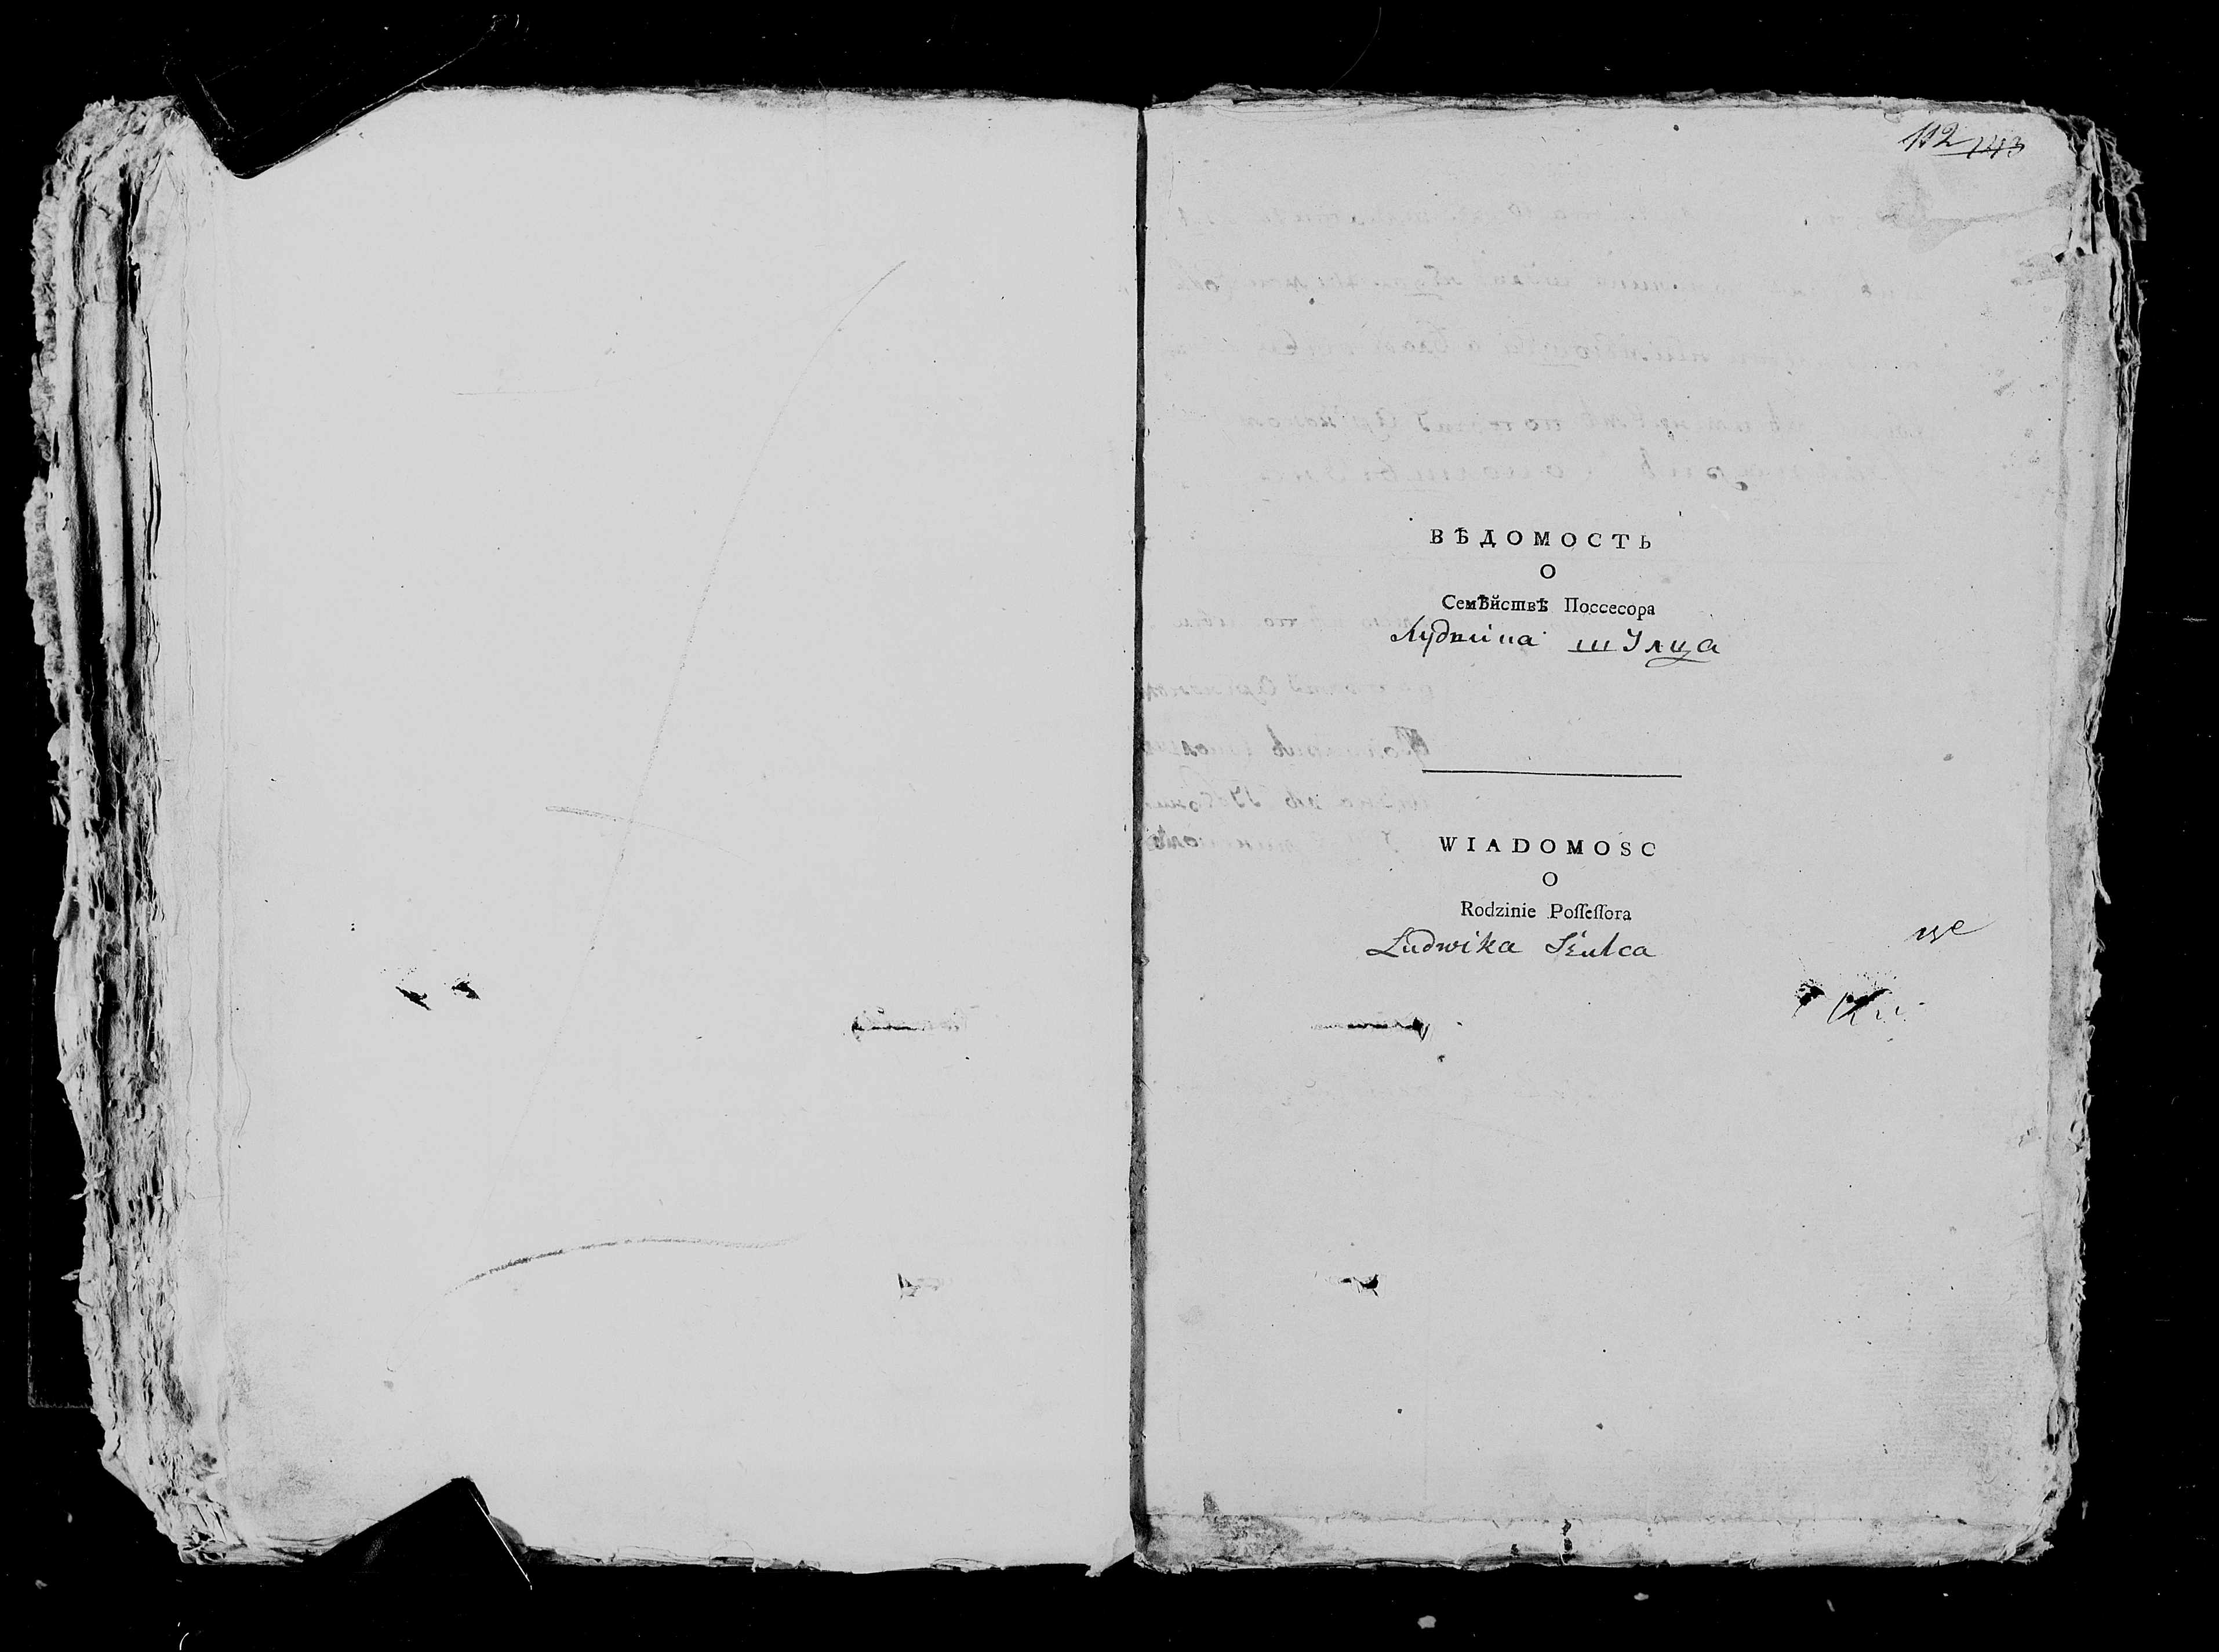 112 143
ВѢДОМОСТЬ
О
Семѣйствѣ Поссесора
Лудвика шулца
WIADOMOSC
O
Rodzinie Poſſeſſora
Ludwika Szulca